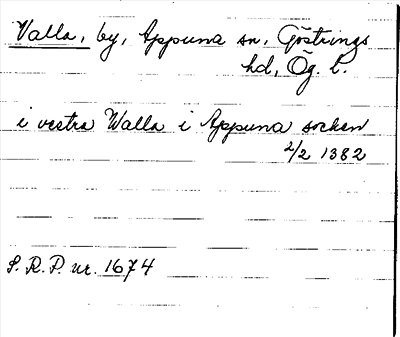 Valla, by, Appuna sn, Göstrings
hd, Ög. l.
i vestra Walla i Appuna socken
2/2 1382
S. R. P. nr. 1674